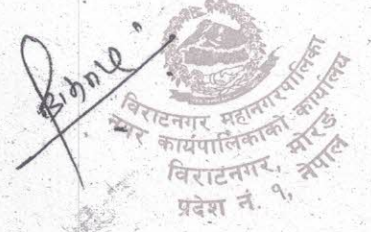 विराटनगर महानगरपालिका
नगर कार्यपालिकाको कार्यालय
विराटनगर, मोरङ
प्रदेश नं. १, नेपाल